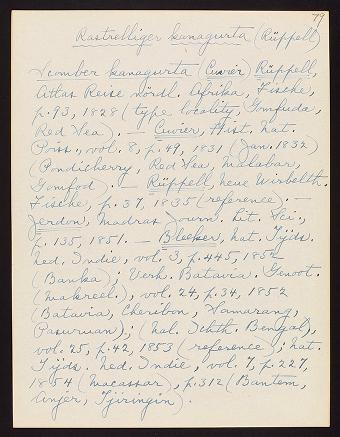 79
Rastrelliger kanagurta (Rüppell)
Scomber kanagurta (Cuvier) Rüppell,
Atlas Reise nördl. Afrika, Fische,
p. 93, 1828 (type locality, Gomfuda,
Red Sea). — Cuvier, Hist. Nat.
Poiss., vol. 8, p. 49, 1831 (Jan. 1832)
(Pondicherry, Red Sea, Malabar,
Gomfod). — Rüppell, Neue Wirbelth.
Fische, p. 37, 1835 (reference). —
Jerdon, Madras Journ. Lit. Sci.,
p. 135, 1851. — Bleeker, Nat. Tijds.
Ned. Indie, vol. 3, p. 445, 1852
(Banka); Verh. Batavia. Genoot.
(Makreel.), vol. 24, p. 34, 1852
(Batavia, Cheribon, Samarang,
Pasuruan); (Nal. Ichth. Bengal),
vol. 25, p. 42, 1853 (reference); Nat.
Tijds. Ned. Indie, vol. 7, p. 227,
1854 (Macassar), p. 312 (Bantam,
Anjer, Tjiringin).